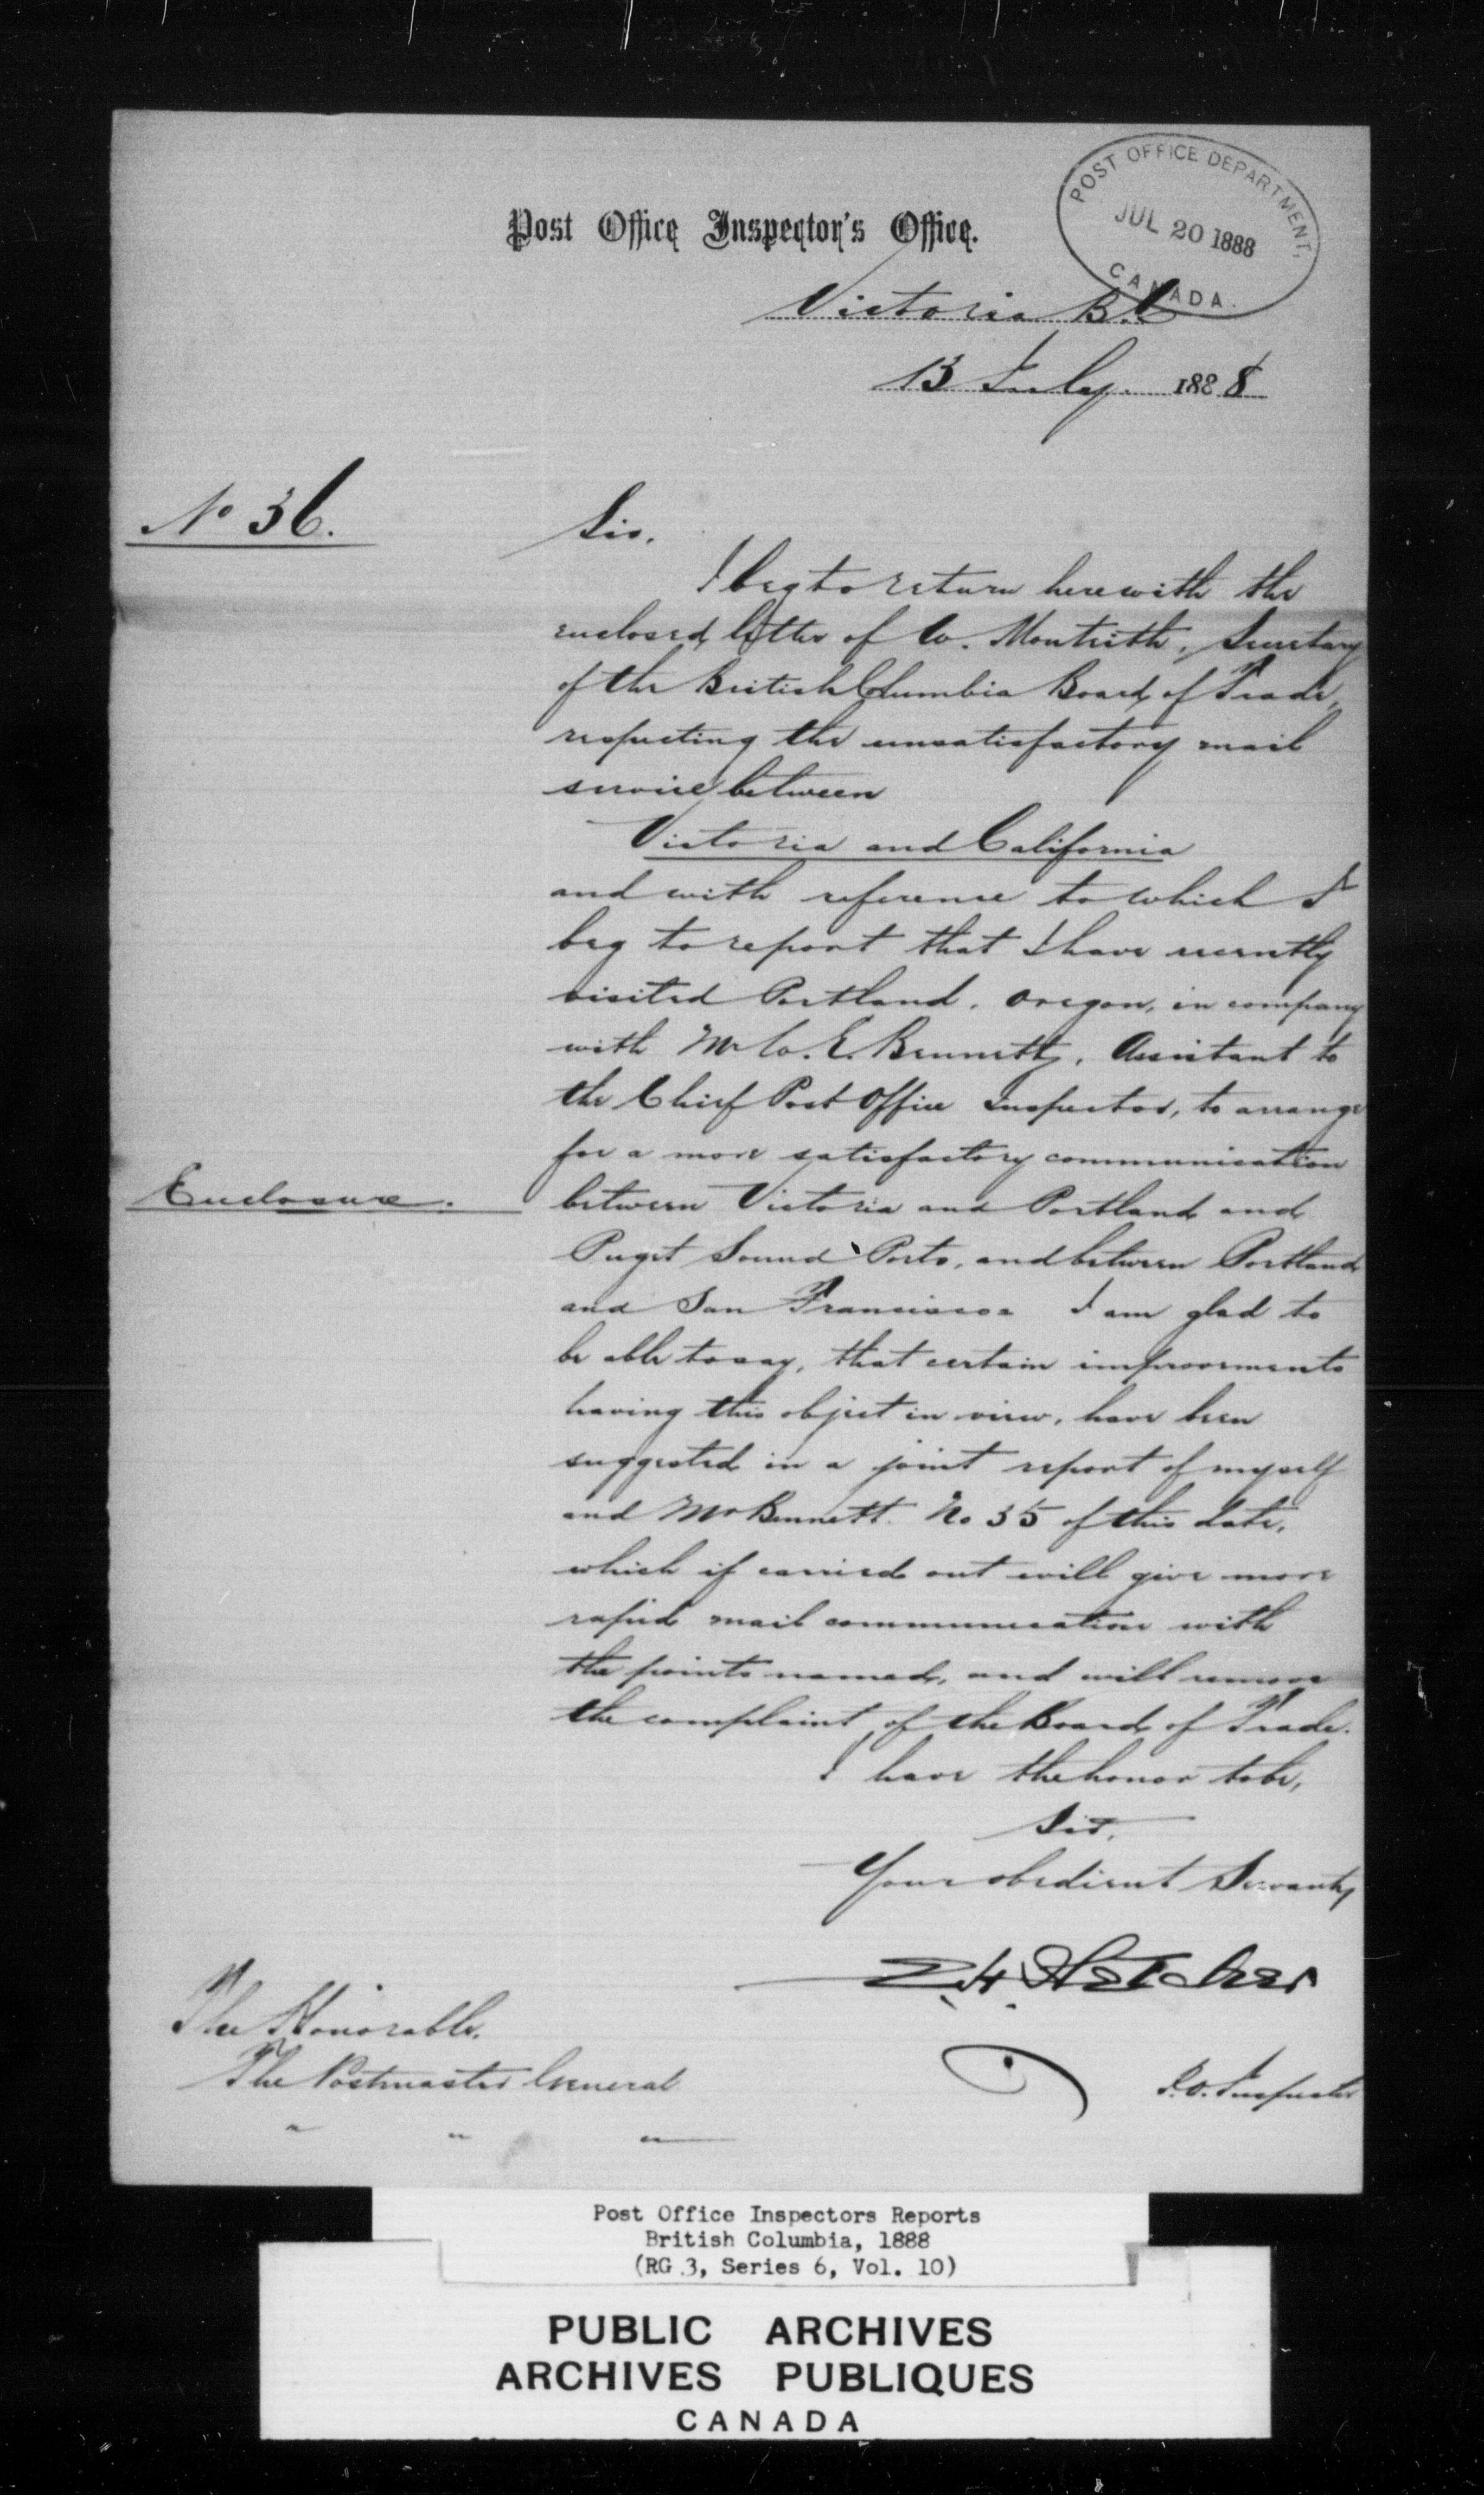 POST OFFICE DEPARTMENT.
JUL 20 1888
CANADA.
Post Office Inspector's Office.
Victoria B.C
13 July. 1888
No 36.
Sir.
I beg to return herewith the
enclosed letter of W. Monteith, Secretary
of the British Columbia Board of Trade,
respecting the unsatisfactory mail
service between
Victoria and California
and with reference to which I
beg to report that I have recently
visited Portland, Oregon, in company
with Mr W. E. Bennett, Assistant to
the Chief Post Office Inspector, to arrange
for a more satisfactory communication
Enclosure.
between Victoria and Portland and
Puget Sound Ports, and between Portland
and San Francisco. I am glad to
be able to say, that certain improvements
having this object in view, have been
suggested in a joint report of myself
and Mr Bennett No 35 of this date,
which if carried out will give more
rapid mail communication with
the points named, and will remove
the complaint of the Board of Trade.
I have the honor to be,
Sir,
Your obedient Servant,
E.H. Fletcher
P.O. Inspector
The Honorable,
The Postmaster General
" " "
Post Office Inspectors Reports
British Columbia, 1888
(RG 3, Series 6, Vol. 10)
PUBLIC ARCHIVES
ARCHIVES PUBLIQUES
CANADA